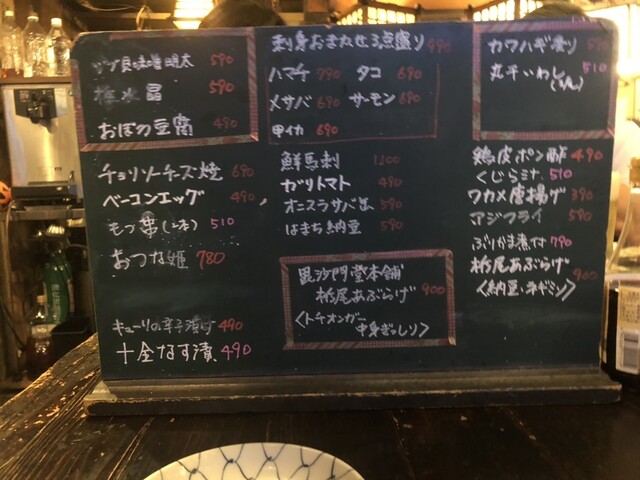 明太 590
水晶 590
おぼろ豆腐 490
チョリソーチーズ焼 690
ベーコンエッグ 490
510
おつな姫 780
キューリの辛子漬け 490
十全なす漬 490
刺身おまかせ3点盛り 990
ハマチ 790 タコ 690
〆サバ 690 サーモン 690
甲イカ 690
鮮馬刺 1100
ガリトマト 490
オニスラサバ缶 590
はまち納豆 590
毘沙門堂本舗
栃尾あぶらげ 900
〈トチオンガー
中身ぎっしり〉
カワハギ
丸干いわし 510
鶏皮ポン酢 490
くじらミナ 510
ワカメ唐揚げ 390
アジフライ 590
ぶりかま煮付 790
栃尾あぶらげ 900
〈納豆、ネギミソ〉